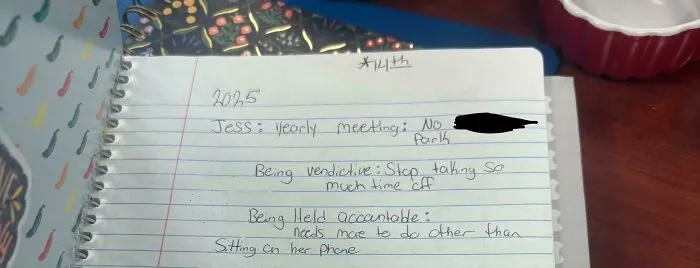 *14th
2025
Jess: Yearly meeting: No
Park
Being vendictive: Stop taking so
much time off
Being Held accountable:
needs more to do other than
Sitting on her phone